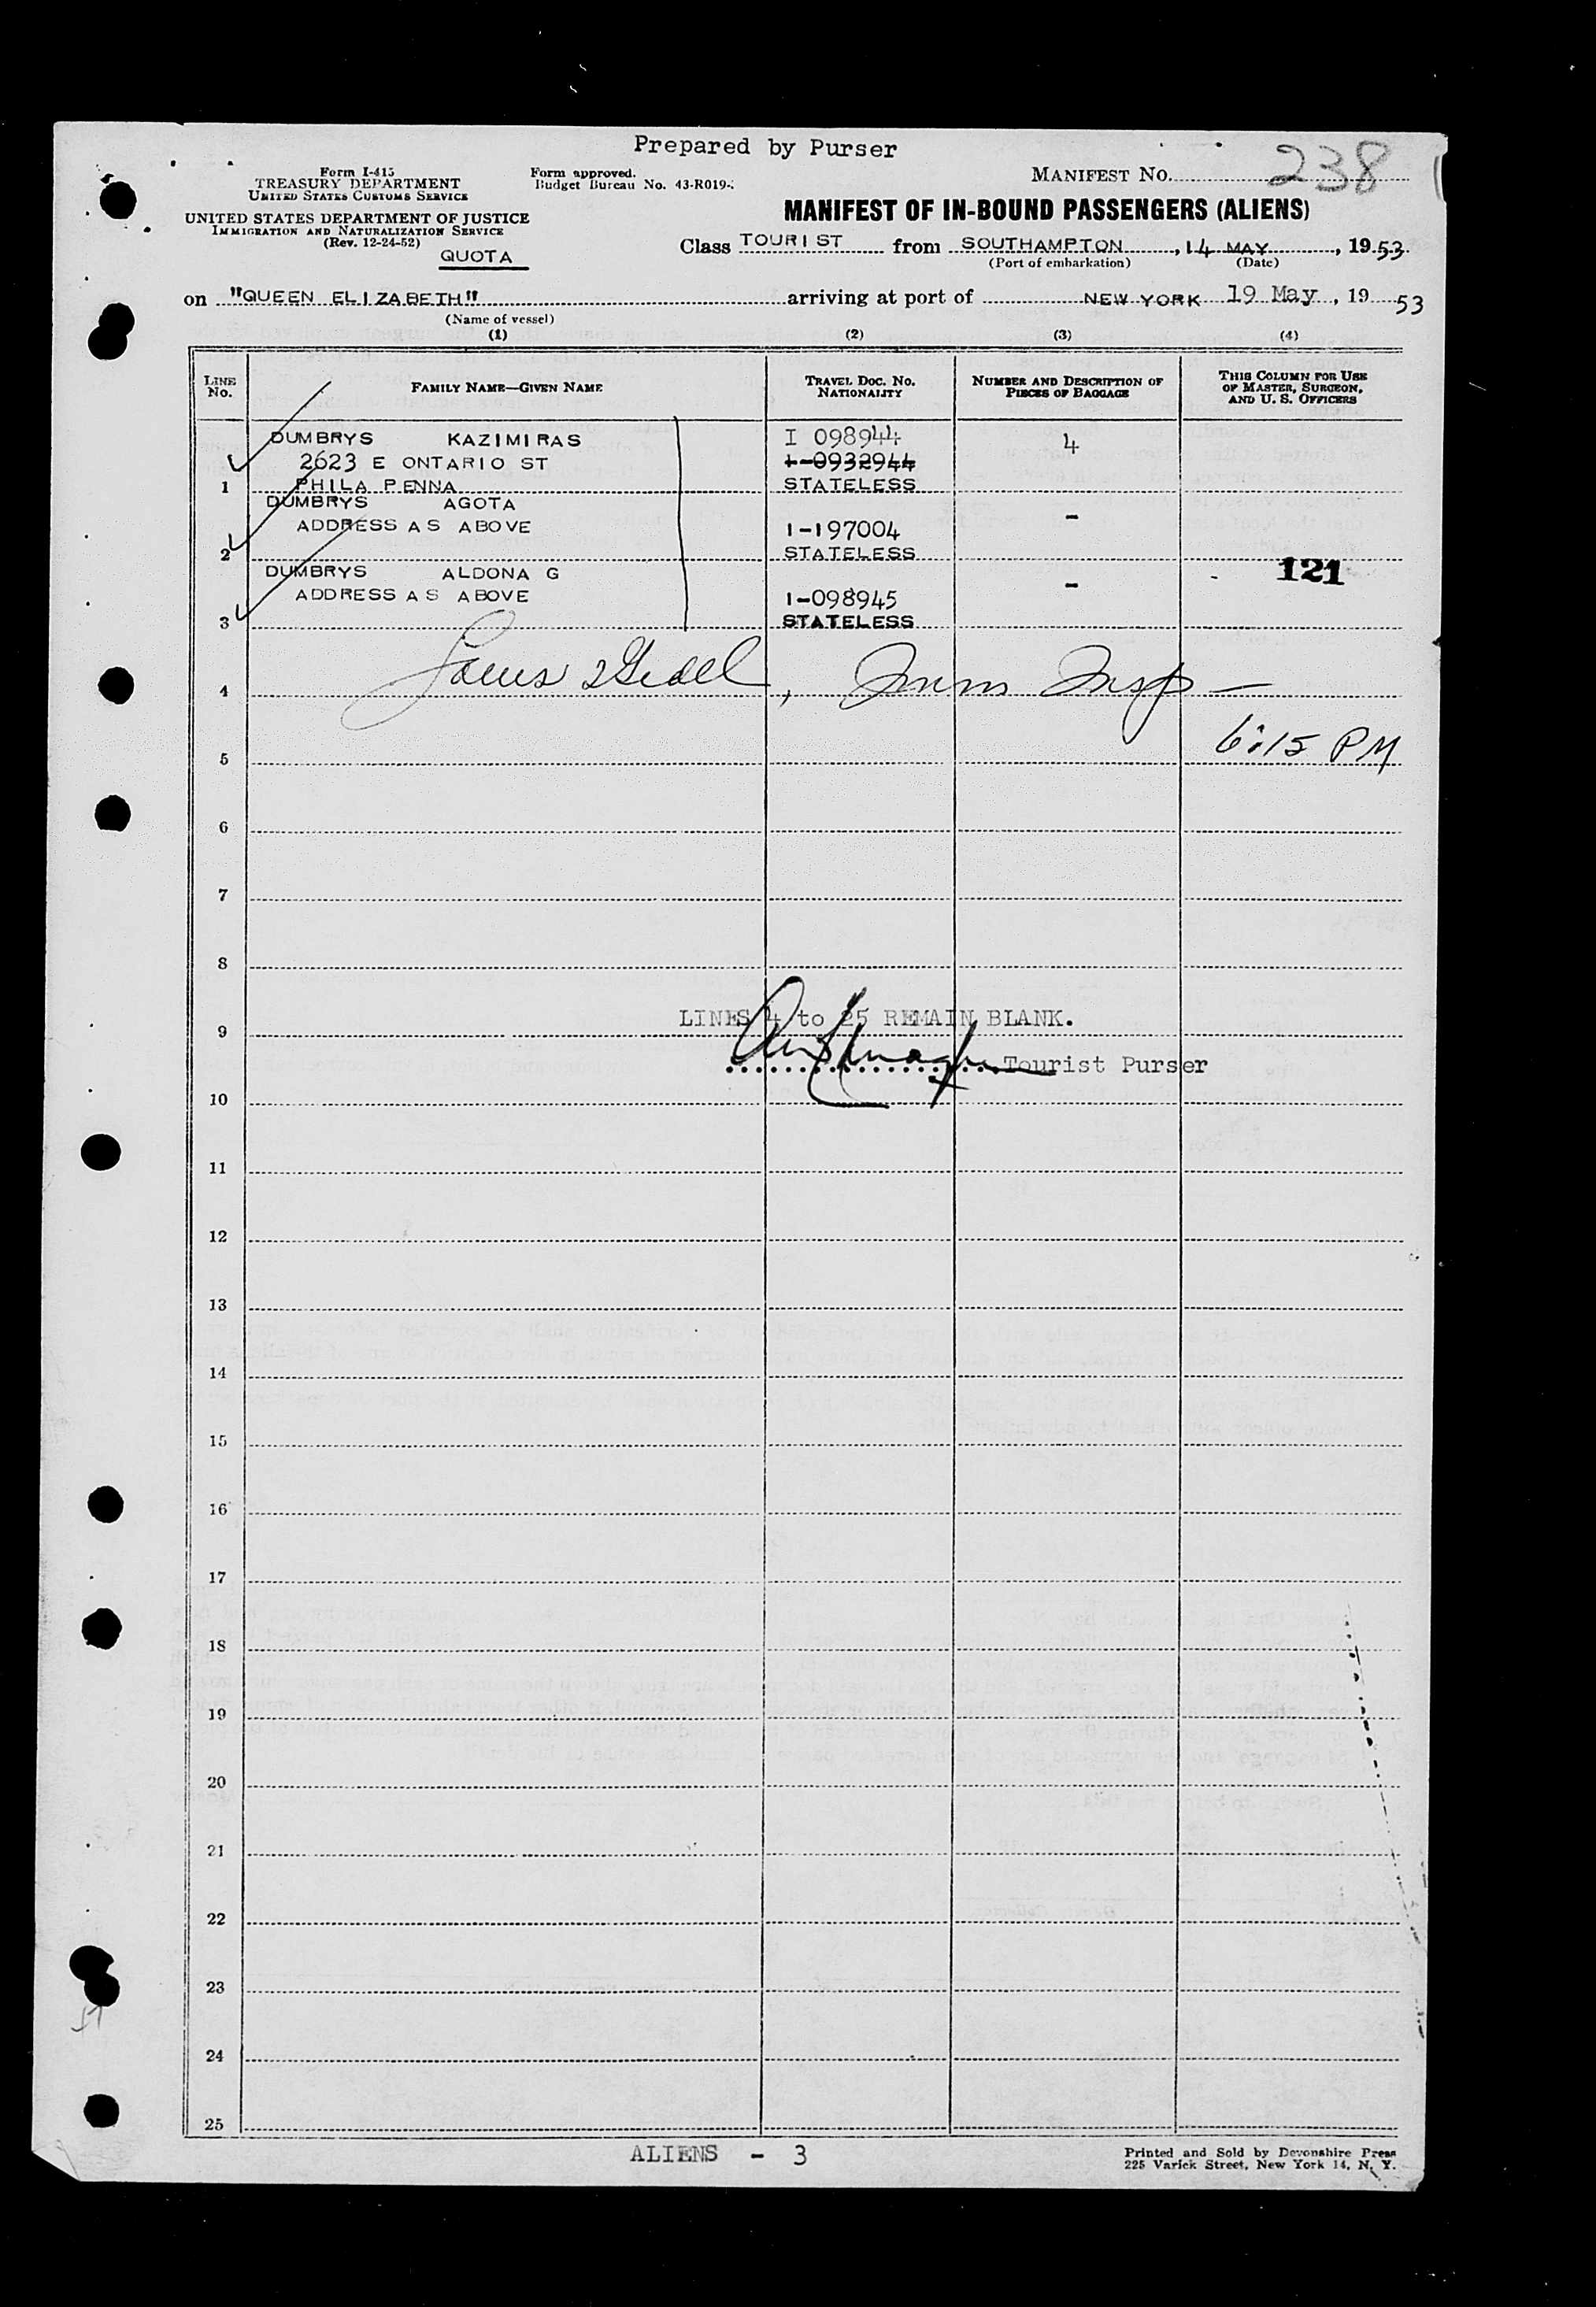 Prepared by Purser
238
Form I-415
TREASURY DEPARTMENT
UNITED STATES CUSTOMS SERVICE
Form approved.
Budget Bureau No. 43-R019-
MANIFEST NO.
UNITED STATES DEPARTMENT OF JUSTICE
IMMIGRATION AND NATURALIZATION SERVICE
(Rev. 12-24-52)
QUOTA
MANIFEST OF IN-BOUND PASSENGERS (ALIENS)
Class TOURIST from SOUTHAMPTON, 14 MAY, 1953
(Port of embarkation) (Date)
on "QUEEN ELIZABETH" arriving at port of NEW YORK 19 May, 19 53
(Name of vessel)
(1) (2) (3) (4)
LINE NO. FAMILY NAME—GIVEN NAME TRAVEL DOC. NO. NATIONALITY NUMBER AND DESCRIPTION OF PIECES OF BAGGAGE THIS COLUMN FOR USE OF MASTER, SURGEON, AND U. S. OFFICERS
DUMBRYS KAZIMIRAS I 098944 4
2623 E ONTARIO ST I-0932944
1 PHILA PENNA STATELESS
DUMBRYS AGOTA -
ADDRESS AS ABOVE I-197004
2 STATELESS
DUMBRYS ALDONA G - 121
ADDRESS AS ABOVE I-098945
3 STATELESS
4 Louis , Imm Insp -
5 6:15 PM
6
7
8
LINES 4 to 25 REMAIN BLANK.
9
Tourist Purser
10
11
12
13
14
15
16
17
18
19
20
21
22
23
24
25
ALIENS - 3
Printed and Sold by Devonshire Press
225 Varick Street, New York 14, N. Y.